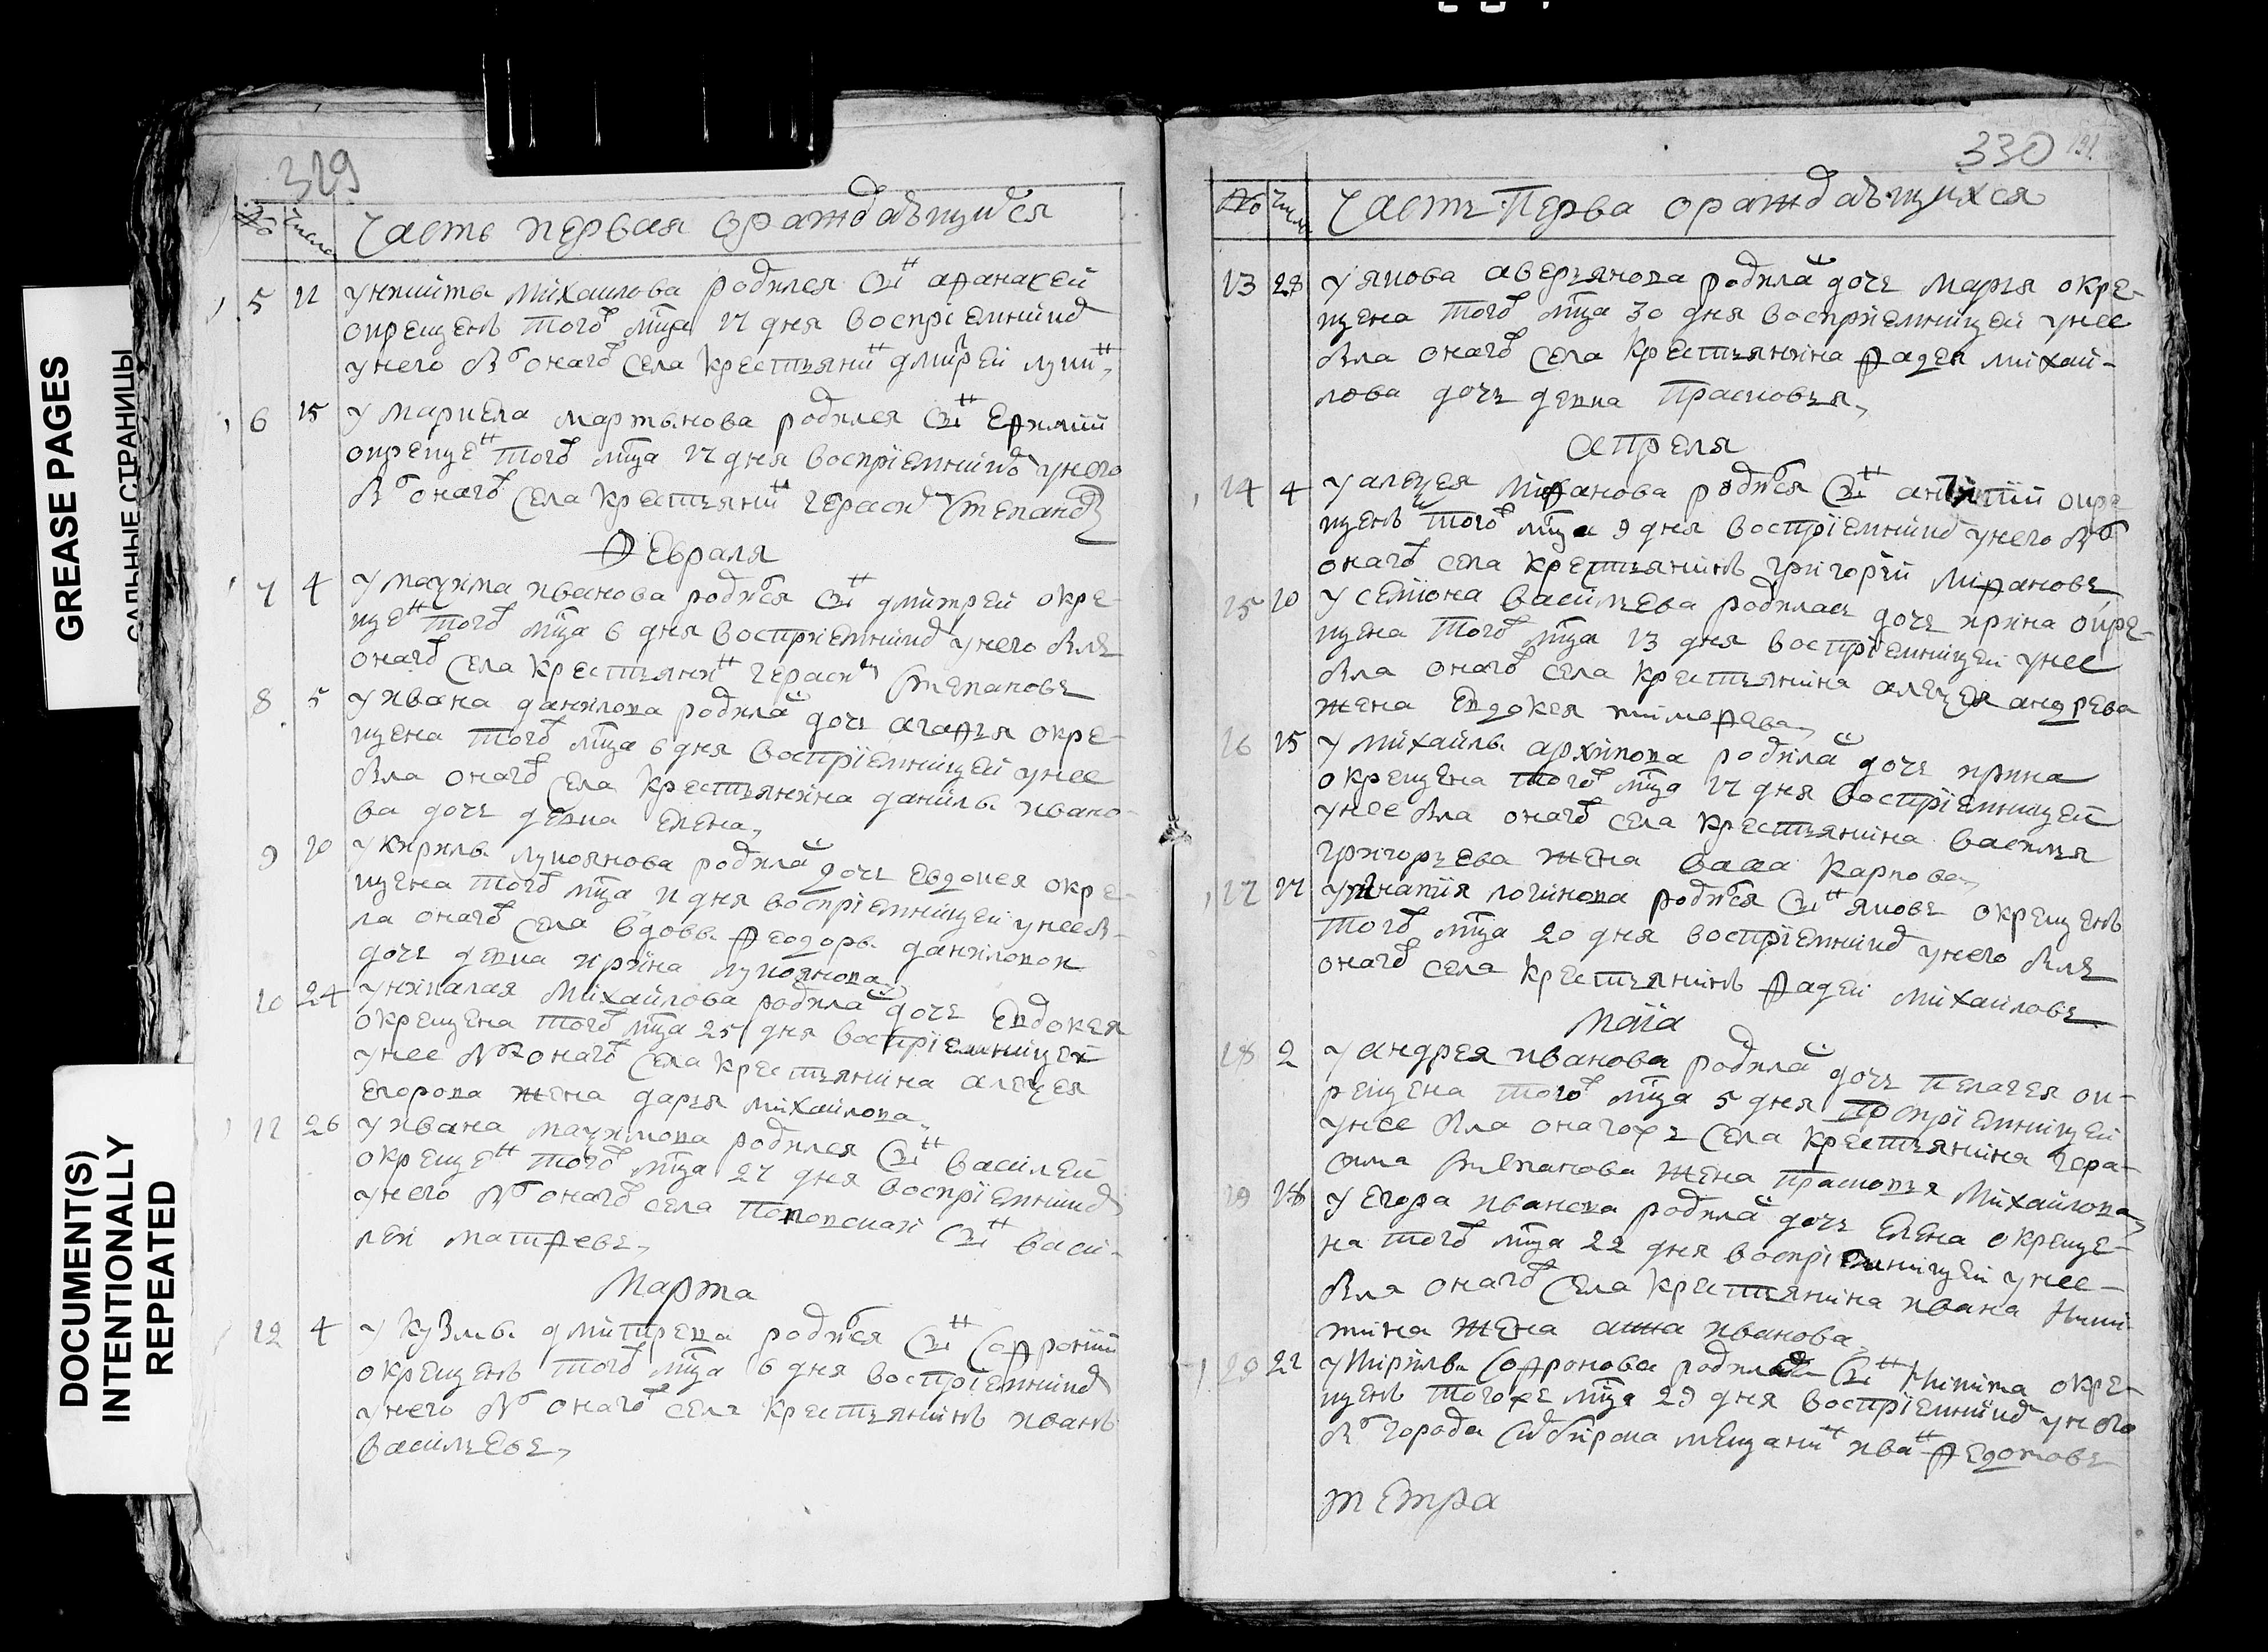 GREASE PAGES
САЛЬНЫЕ СТРАНИЦЫ
DOCUMENT(S)
INTENTIONALLY
REPEATED
329
№ Числа Часть первая ораждаѣщихся
5 11 У никиты Михаилова родился сн афанасей
окрещенъ того мца 17 дня восприемникъ
у него бы онаго села крестьянин дмитрей лукин
6 15 У маркела мартынова родился сн
окрещен того мца 17 дня восприемникъ у него
бы онаго села крестьянин герасим степанов
Февраля
7 4 У маѯима иванова родился сн дмитрей окре-
щен того мца 6 дня восприемникъ у него былъ
онаго села крестьянин герасим степановъ
8 5 У ивана данилова родилас дочь агафья окре-
щена того мца 6 дня восприемницей у нее
была онаго села крестьянина данилы ивано-
ва дочь девка елена
9 10 У кирилы лукоянова родилас дочь евдокея окре-
щена того мца 11 дня восприемницей у нее б-
ла онаго села вдовы феодоры даниловой
дочь девка ирина лукоянова
10 24 У николая Михаилова родилас дочь Евдокея
окрещена того мца 25 дня восприемницей
у нее бы онаго села крестьянина алеѯея
Егорова жена дарья михаилова
11 26 У ивана маѯимова родился сн василей
окрещен того мца 27 дня восприемникъ
у него бы онаго села поповской сн васи-
лей матфевъ
Марта
12 4 У кузмы дмитрева родился сн софроний
окрещенъ того мца 6 дня восприемникъ
у него бы онаго села крестьянинъ иванъ
васильевъ
330 191
№ Числа Часть Перва ораждаѣщихся
13 28 У якова аверьянова родилас дочь марья окре-
щена того мца 30 дня восприемницей у нее
была онаго села крестьянина фадея михай-
лова дочь девка Прасковья
Апреля
14 4 У алеѯея Мифанова родился сн антипий окре
щенъ того мца 9 дня восприемникъ у него бы
онаго села крестьянинъ григорей Мифановъ
15 10 У семиона васильева родилась дочь ирина окре-
щена того мца 13 дня восприемницей у нее
была онаго села крестьянина алеѯея андрева
жена Евдокея тимофева
16 15 У михайлы архипова родилас дочь ирина
окрещена того мца 17 дня восприемницей
у нее была онаго села крестьянина василья
григорьева жена васса карпова
17 17 У игнатия логинова родился сн яковъ окрещенъ
того мца 20 дня восприемникъ у него былъ
онаго села крестьянинъ фадей михаиловъ
Маїа
18 2 У андрея иванова родилас дочь пелагея ок-
рещена того мца 5 дня восприемницей
у нее была онагожъ села крестьянина гера-
сима степанова жена прасковья михаилова
19 18 У егора иванова родилас дочь елена окреще-
на того мца 22 дня восприемницей у нее
была онаго села крестьянина ивана ники-
тина жена анна иванова
20 22 У Кирилы софронова родился сн Никита окре-
щенъ тогожъ мца 29 дня восприемникъ у него
бы города сибирска мещанин иван федотовъ